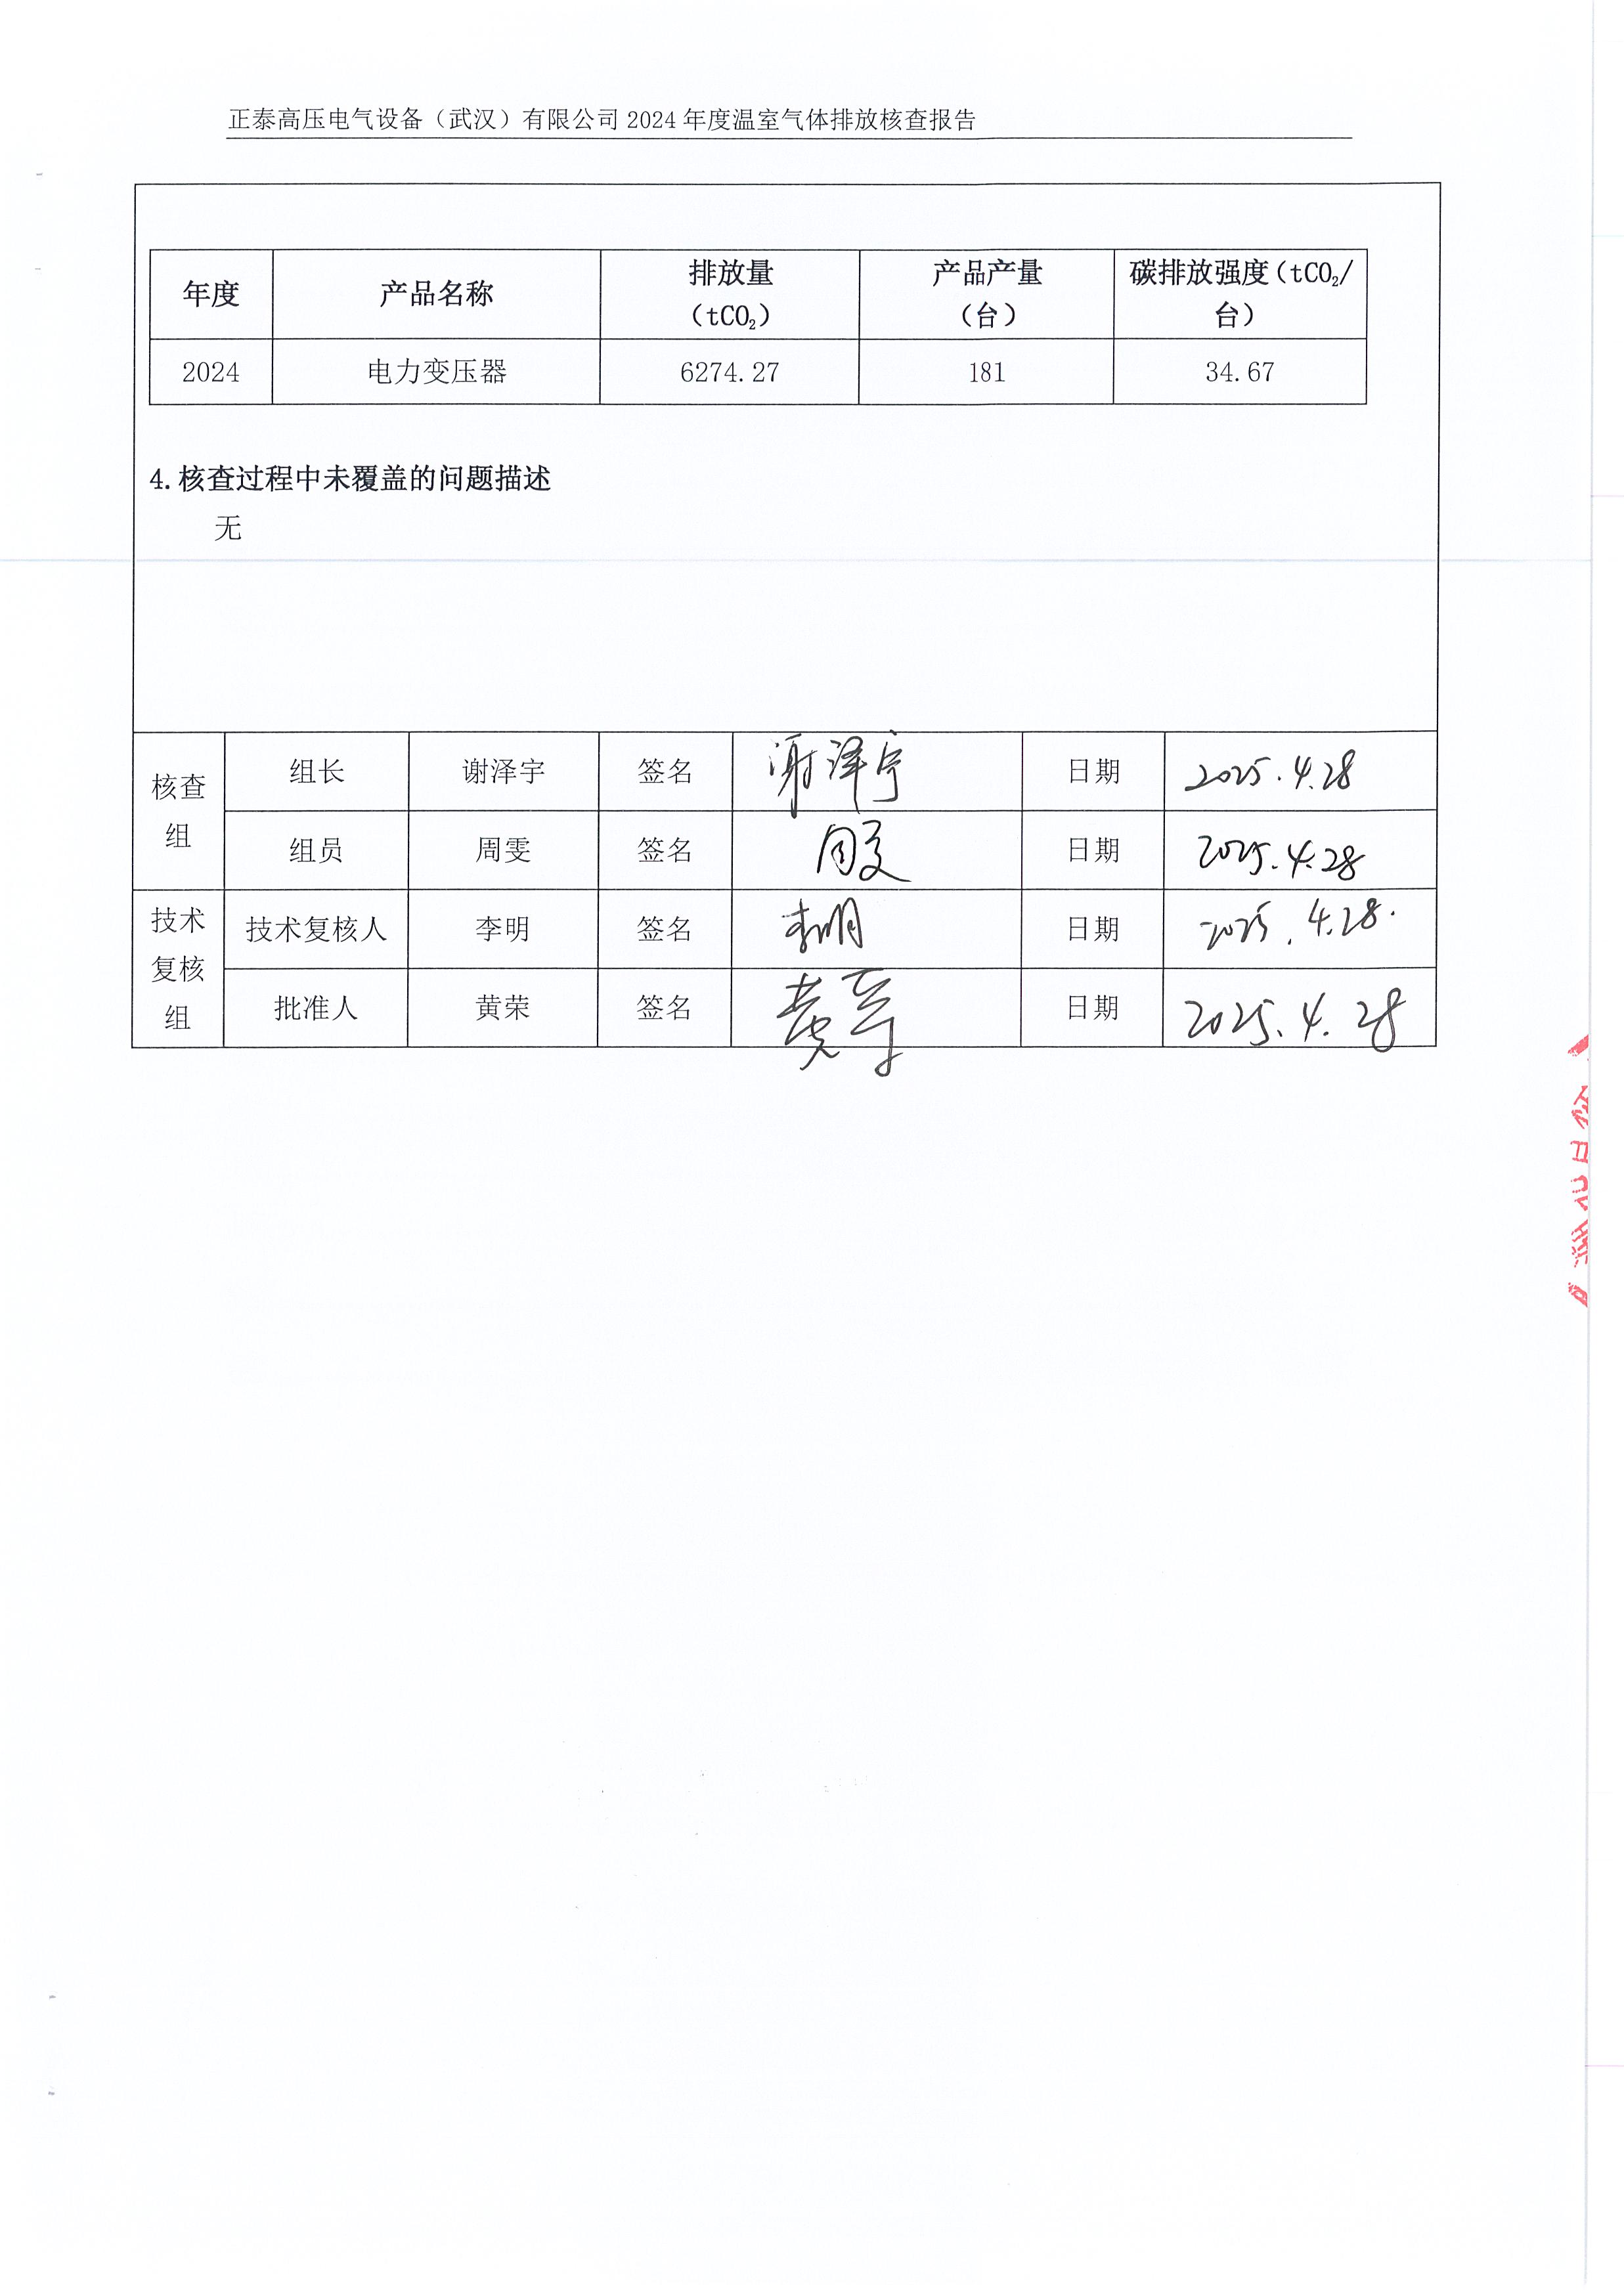 正泰高压电气设备（武汉）有限公司 2024 年度温室气体排放核查报告
年度 产品名称 排放量（tCO₂） 产品产量（台） 碳排放强度（tCO₂/台）
2024 电力变压器 6274.27 181 34.67
4.核查过程中未覆盖的问题描述
无
核查组 组长 谢泽宇 签名 谢泽宇 日期 2025.4.28
组员 周雯 签名 周雯 日期 2025.4.28
技术复核组 技术复核人 李明 签名 李明 日期 2025.4.28.
批准人 黄荣 签名 黄荣 日期 2025.4.28